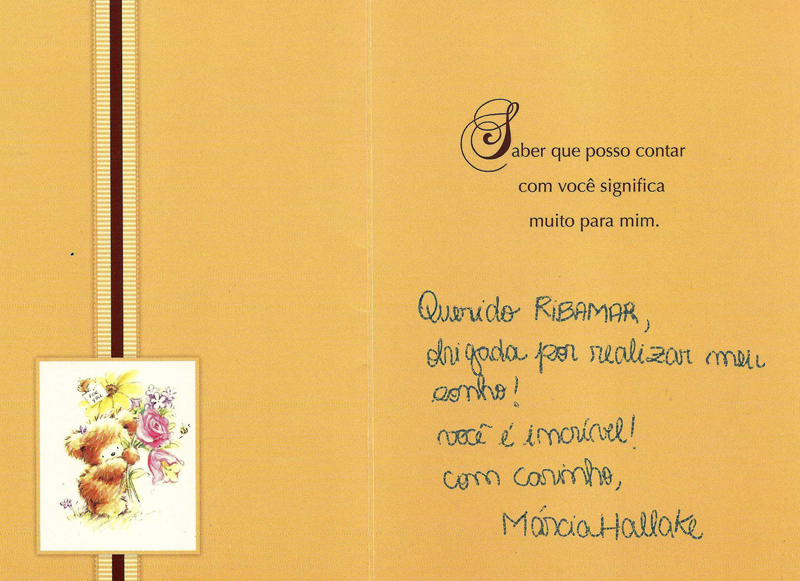 Saber que posso contar
com você significa
muito para mim.
Querido RiBAMAR,
obrigada por realizar meu
sonho!
você é incrível!
com carinho,
Márcia Hallake